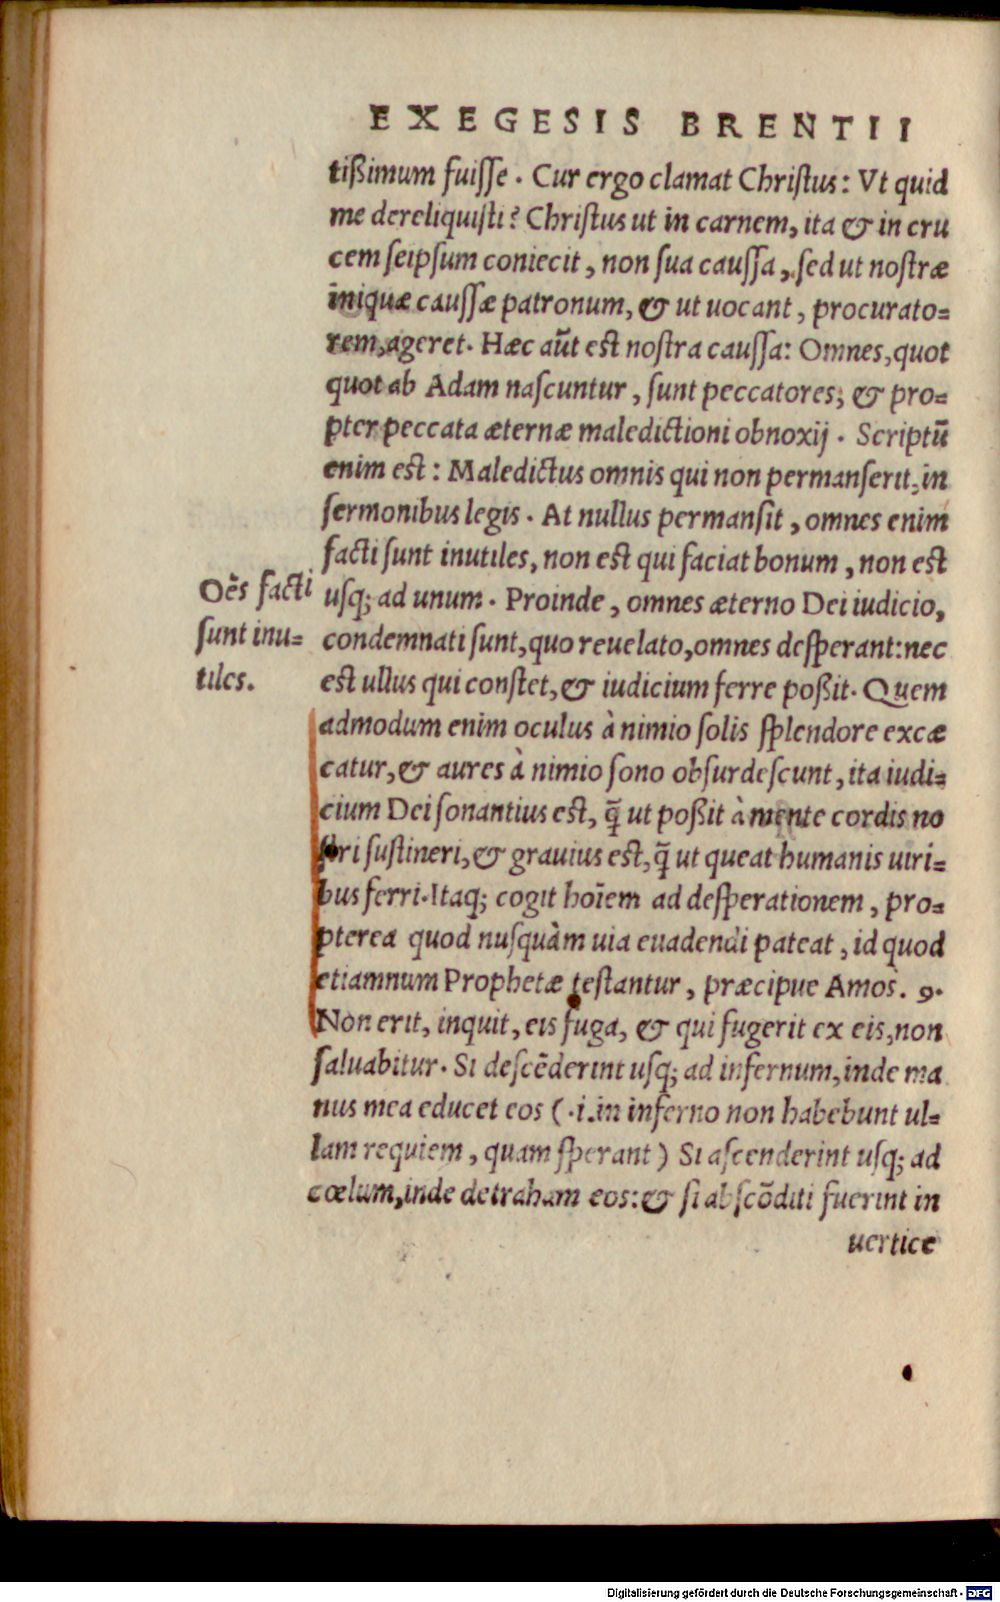 EXEGESIS BRENTII
tißimum fuisse. Cur ergo clamat Christus: Vt quid
me dereliquisti? Christus ut in carnem, ita & in cru
cem seipsum coniecit, non sua caussa, sed ut nostræ
iniquæ caussæ patronum, & ut uocant, procurato=
rem, ageret. Hæc aūt est nostra caussa: Omnes, quot
quot ab Adam nascuntur, sunt peccatores; & pro=
pter peccata æternæ maledictioni obnoxij. Scriptū
enim est: Maledictus omnis qui non permanserit in
sermonibus legis. At nullus permansit, omnes enim
facti sunt inutiles, non est qui faciat bonum, non est
usq; ad unum. Proinde, omnes æterno Dei iudicio,
condemnati sunt, quo reuelato, omnes desperant: nec
est ullus qui constet, & iudicium ferre poßit. Quem
admodum enim oculus à nimio solis splendore excæ
catur, & aures à nimio sono obsurdescunt, ita iudi=
cium Dei sonantius est, q̄ ut poßit à mente cordis no
stri sustineri, & grauius est, q̄ ut queat humanis uiri=
bus ferri. Itaq; cogit hoīem ad desperationem, pro=
pterea quod nusquàm uia euadendi pateat, id quod
etiamnum Prophetæ testantur, præcipue Amos. 9.
Non erit, inquit, eis fuga, & qui fugerit ex eis, non
saluabitur. Si descēderint usq; ad infernum, inde ma
nus mea educet eos (.i. in inferno non habebunt ul=
lam requiem, quam sperant) Si ascenderint usq; ad
cœlum, inde detraham eos: & si abscōditi fuerint in
uertice
Oēs facti
sunt inu=
tiles.
Digitalisierung gefördert durch die Deutsche Forschungsgemeinschaft - DFG